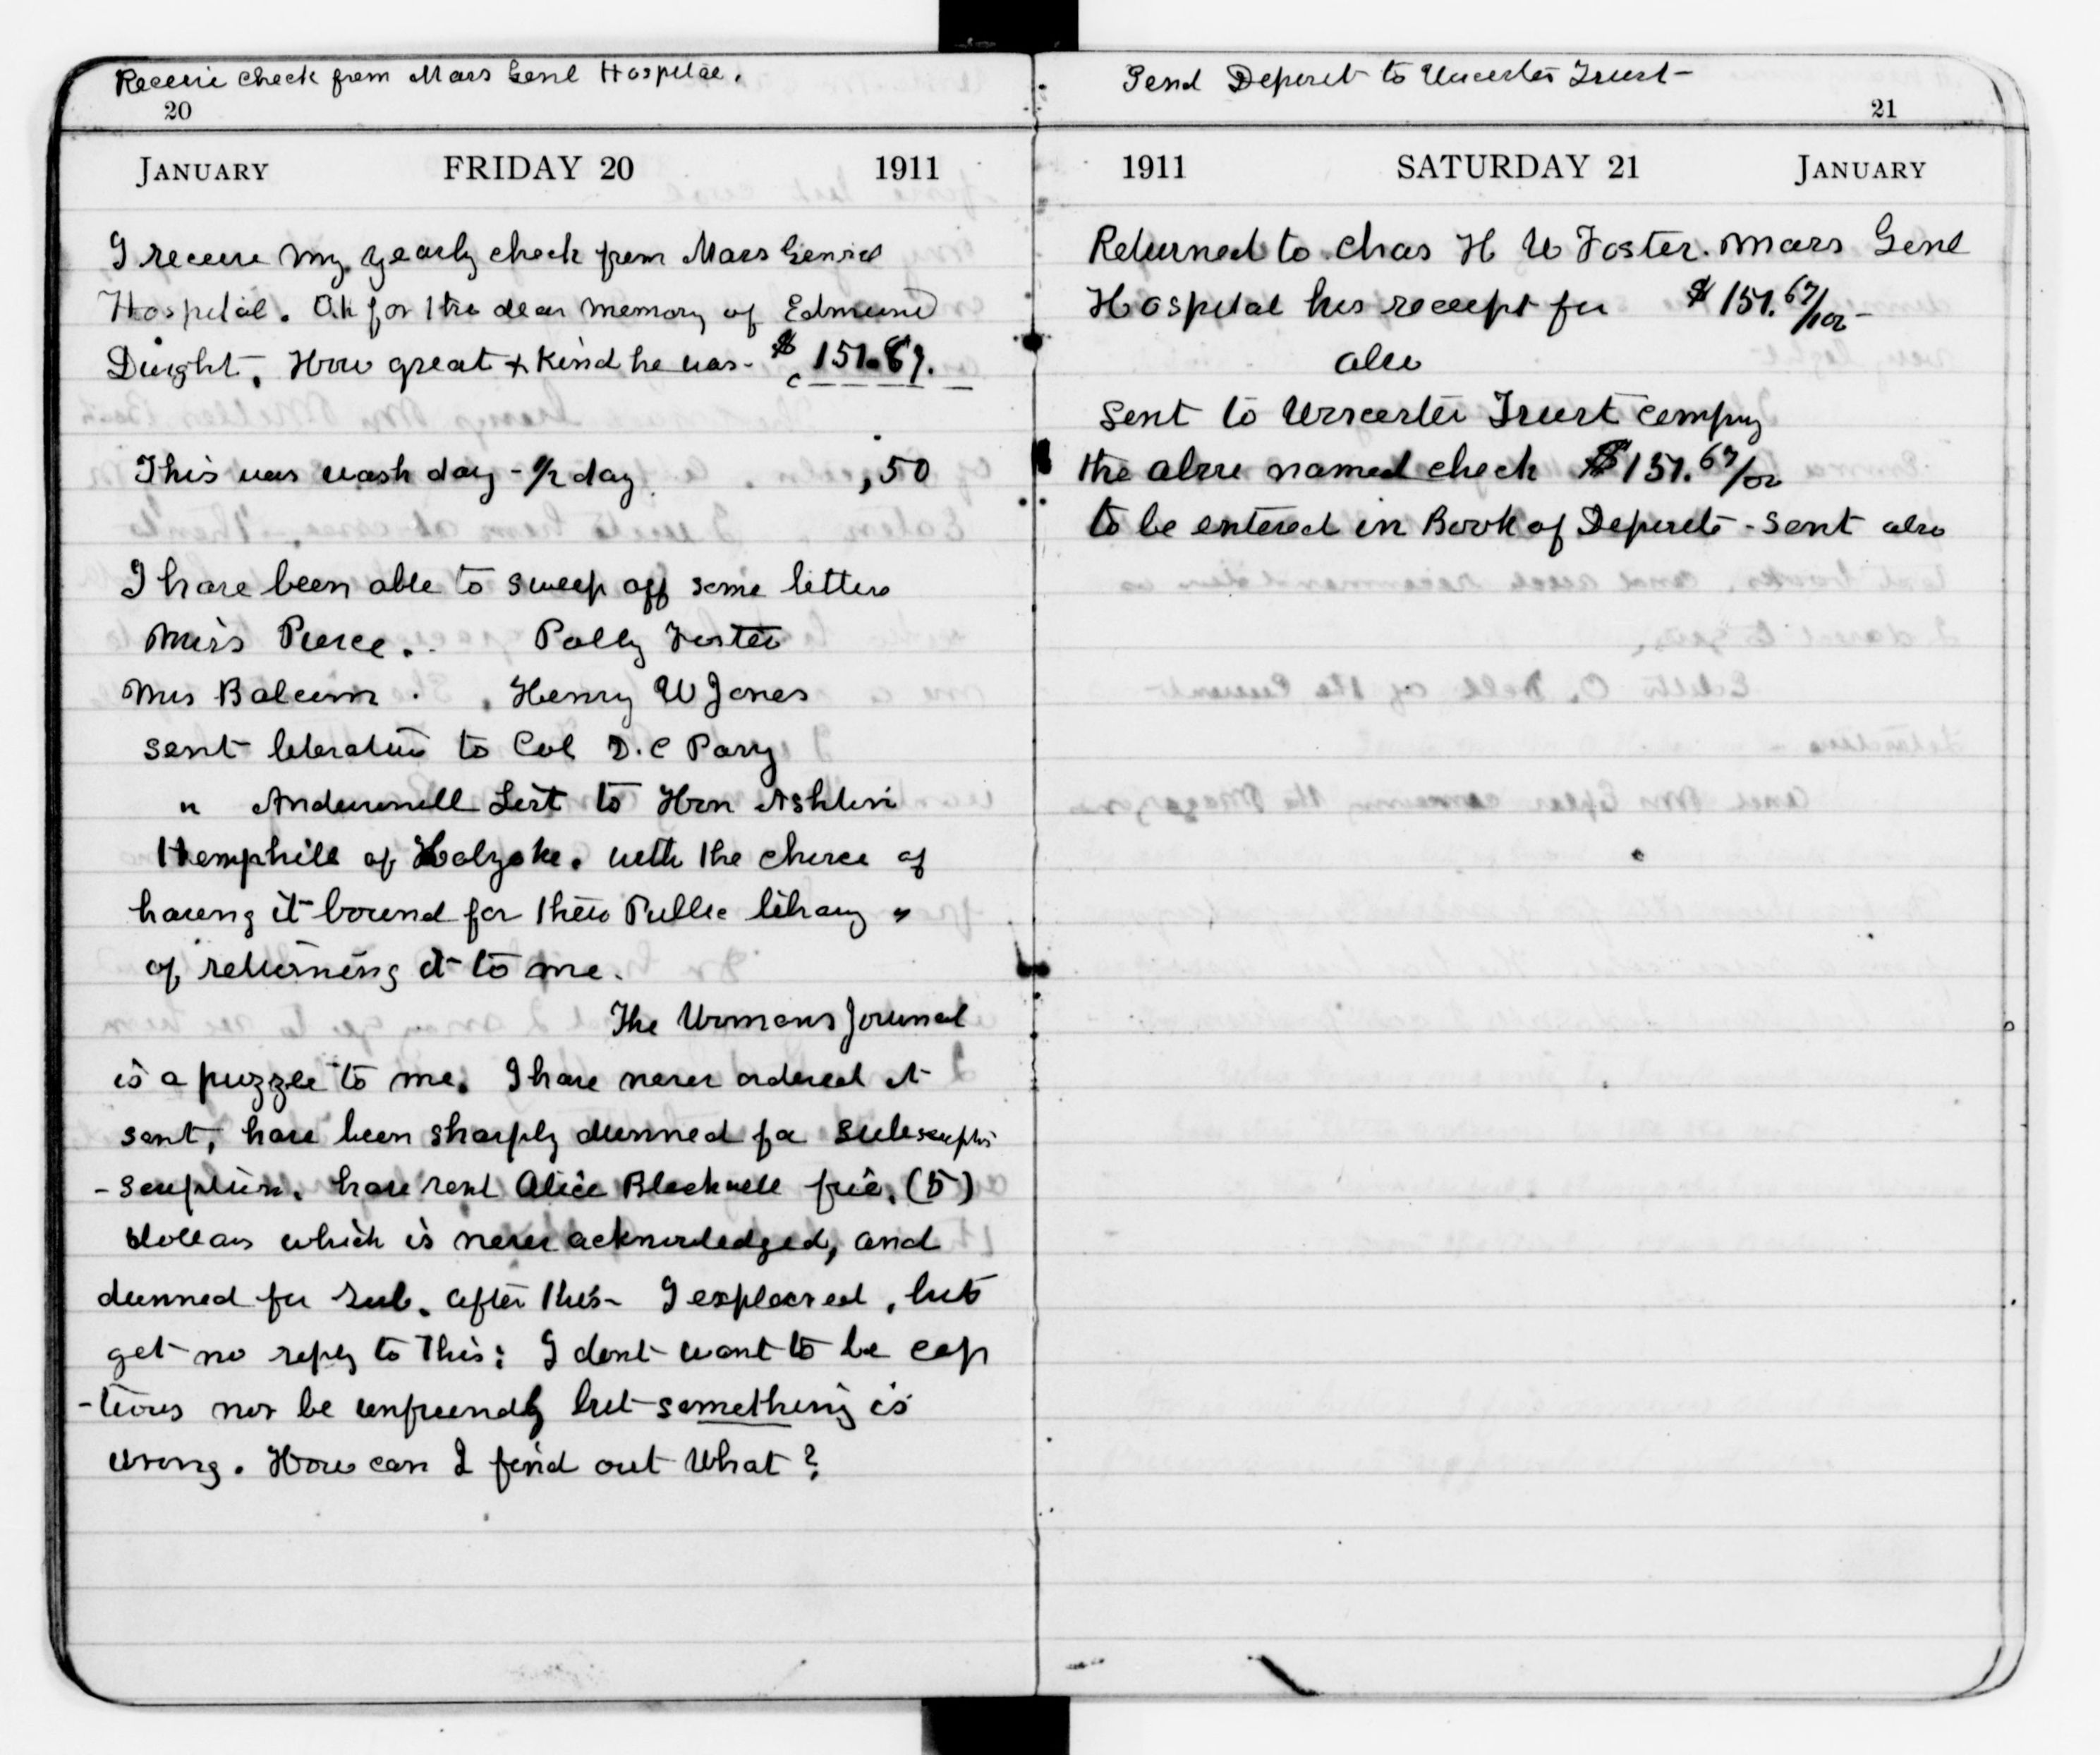 Receive check from Mass Genl Hospital.
20
JANUARY FRIDAY 20 1911
I receive my yearly check from Mass General
Hospital. Oh for the dear memory of Edmund
Dwight. How great & kind he was - $151.67.
This was wash day - 1/2 day ,50
I have been able to sweep off some letters
Miss Pierce. Polly Foster
Mrs Balcum. Henry W Jones
sent literature to Col D. C Parry
" Andersonvill List to Hon Ashton
Hemphill of Holyoke. with the choice of
having it bound for their Public library or
of returning it to me.
The Womans Journal
is a puzzle to me. I have never ordered it
sent, have been sharply dunned for subscriptio
- scription. have sent Alice Blackwell five. (5)
dollars which is never acknowledged, and
dunned for sub. after this - I explained, but
get no reply to this: I dont want to be cap
-tious nor be unfriendly but something is
wrong. How can I find out What?
Send Deposit to Worcester Trust -
21
1911 SATURDAY 21 JANUARY
Returned to Chas H W Foster. Mass Genl
Hospital his receipt for $151.67/100 -
also
Sent to Worcester Trust Compny
the above named check $151.67/100
to be entered in Book of Deposits - sent also